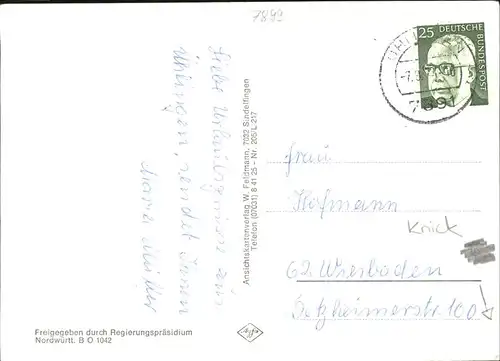 7892
Liebe Urlaubsgrüsse aus
Ühlingen, sendet Ihnen
Maria Müller
Ansichtskartenverlag W. Feldmann, 7032 Sindelfingen
Telefon (07031) 8 41 25 - Nr. 205/L 217
25 DEUTSCHE
BUNDESPOST
7891
Frau
Hofmann
Knick
62 Wiesbaden
Dotzheimerstr. 100
Freigegeben durch Regierungspräsidium
Nordwürtt. B O 1042
Agfa